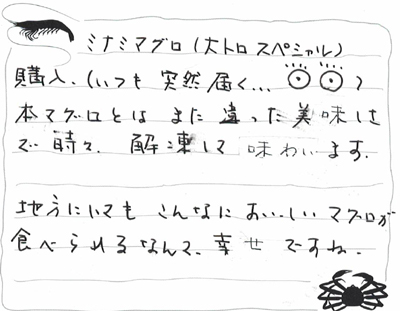 ミナミマグロ(大トロスペシャル)
購入。(いつも突然届く… )
本マグロとは また 違った 美味しさ
で 時々、解凍して 味わいます。
地方にいても こんなに おいしい マグロが
食べられるなんて、幸せですね。